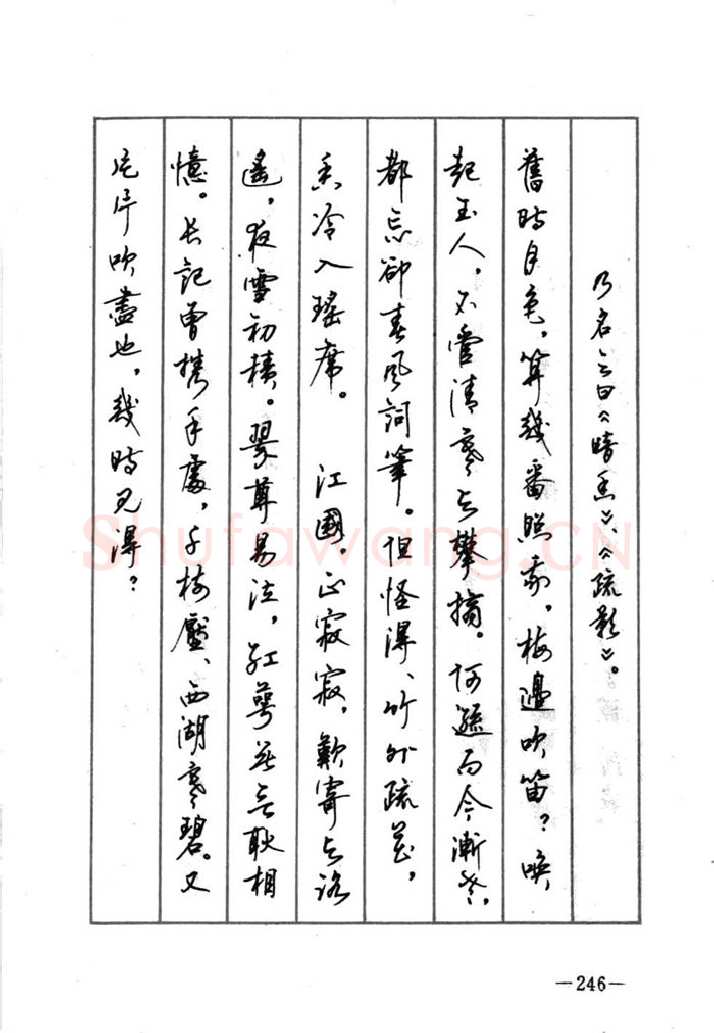 乃名之曰《暗香》、《疏影》。
舊時月色，算幾番照我，梅邊吹笛？喚
起玉人，不管清寒与攀摘。何遜而今漸老，
都忘卻春風詞筆。但怪得、竹外疏花，
香冷入瑤席。 江國，正寂寂，歎寄与路
遙，夜雪初積。翠尊易泣，紅萼無言耿相
憶。长記曾携手處，千树壓、西湖寒碧。又
片片吹盡也，幾時见得？
Shufawang.CN
—246—